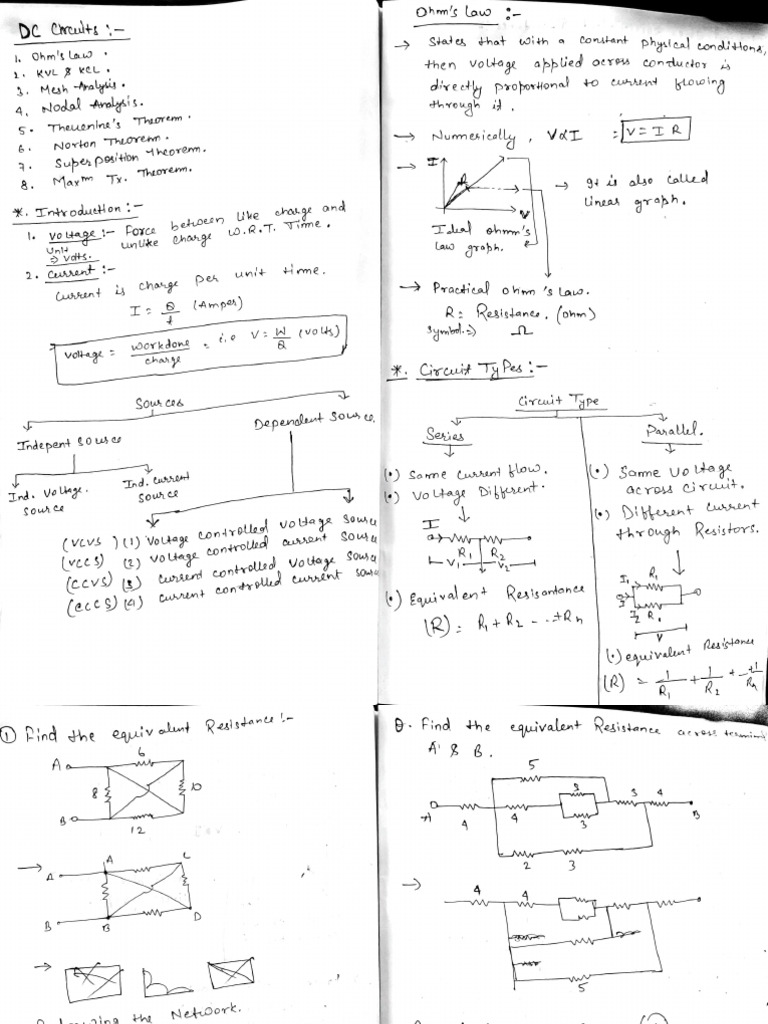 DC Circuits :-
1. Ohm's Law.
2. KVL & KCL.
3. Mesh Analysis.
4. Nodal Analysis.
5. Thevenine's Theorem.
6. Norton Theorem.
7. Superposition theorem.
8. Maxᵐ Tx. Theorem.
*. Introduction :-
1. Voltage :- Force between like charge and
unlike charge W.R.T. Time.
Unit
⇒ volts.
2. Current :-
Current is charge per unit time.
I = Q/t (Amper)
Voltage = workdone/charge = i.e V = W/Q (volts)
Sources
Indepent source
Dependent source.
Ind. Voltage source
Ind. current source
(VCVS) (1) Voltage controlled voltage source
(VCCS) (2) voltage controlled current source
(CCVS) (3) current controlled Voltage source
(CCCS) (4) current controlled current source
Ohm's Law :-
→ States that with a constant physical conditions,
then voltage applied across conductor is
directly proportional to current flowing
through it.
→ Numerically, V∝I = V = I R
→ I
R
V
Ideal ohmm's
Law graph.
→ It is also called
linear graph.
→ Practical ohm's Law.
R = Resistance. (ohm)
Symbol ⇒ Ω
*. Circuit Types :-
Circuit Type
Series
Parallel.
(•) Same current flow.
(•) Voltage Different.
I
R1 R2
V1 V2
(•) Equivalent Resisontance
(R) = R1 + R2 - - .. + Rn
(•) Same voltage
across circuit.
(•) Different current
through Resistors.
I1 R1
I
I2 R2
V
(•) equivalent Resistance
(R) = 1/R1 + 1/R2 + - - + 1/Rn
① Find the equivalent Resistance :-
A 6
8 10
B 12
→ A A C
B B D
→
the Network.
Q. Find the equivalent Resistance across
A & B.
5
A 4 4 3 3 4 B
2 3
→
4 4
5